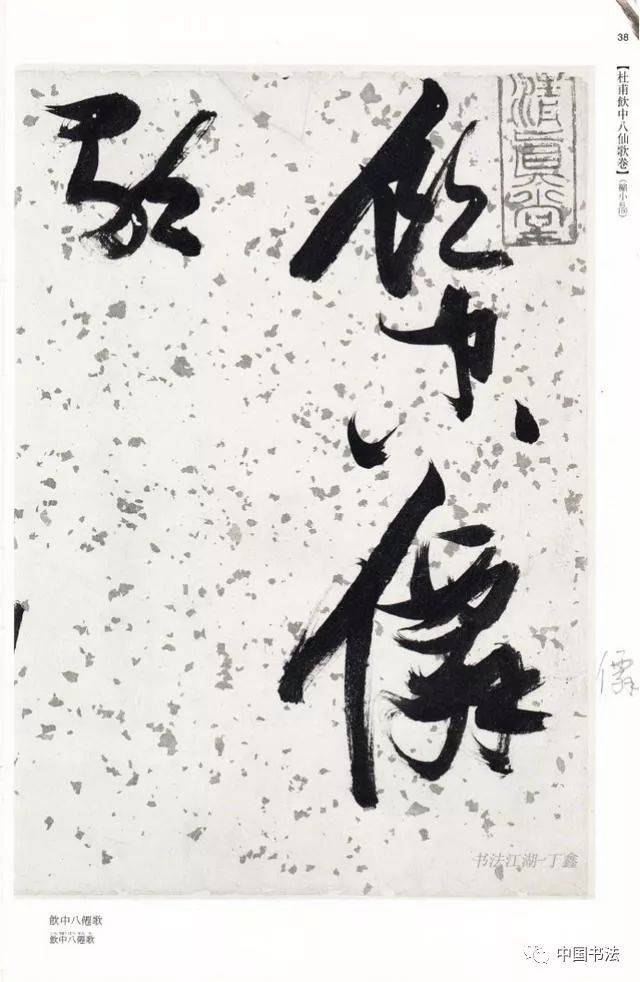 38
【杜甫飲中八仙歌卷】(縮小
清真堂
飲中八僊
歌
僊
书法江湖-丁鑫
飲中八僊歌
飲中八僊歌
中国书法